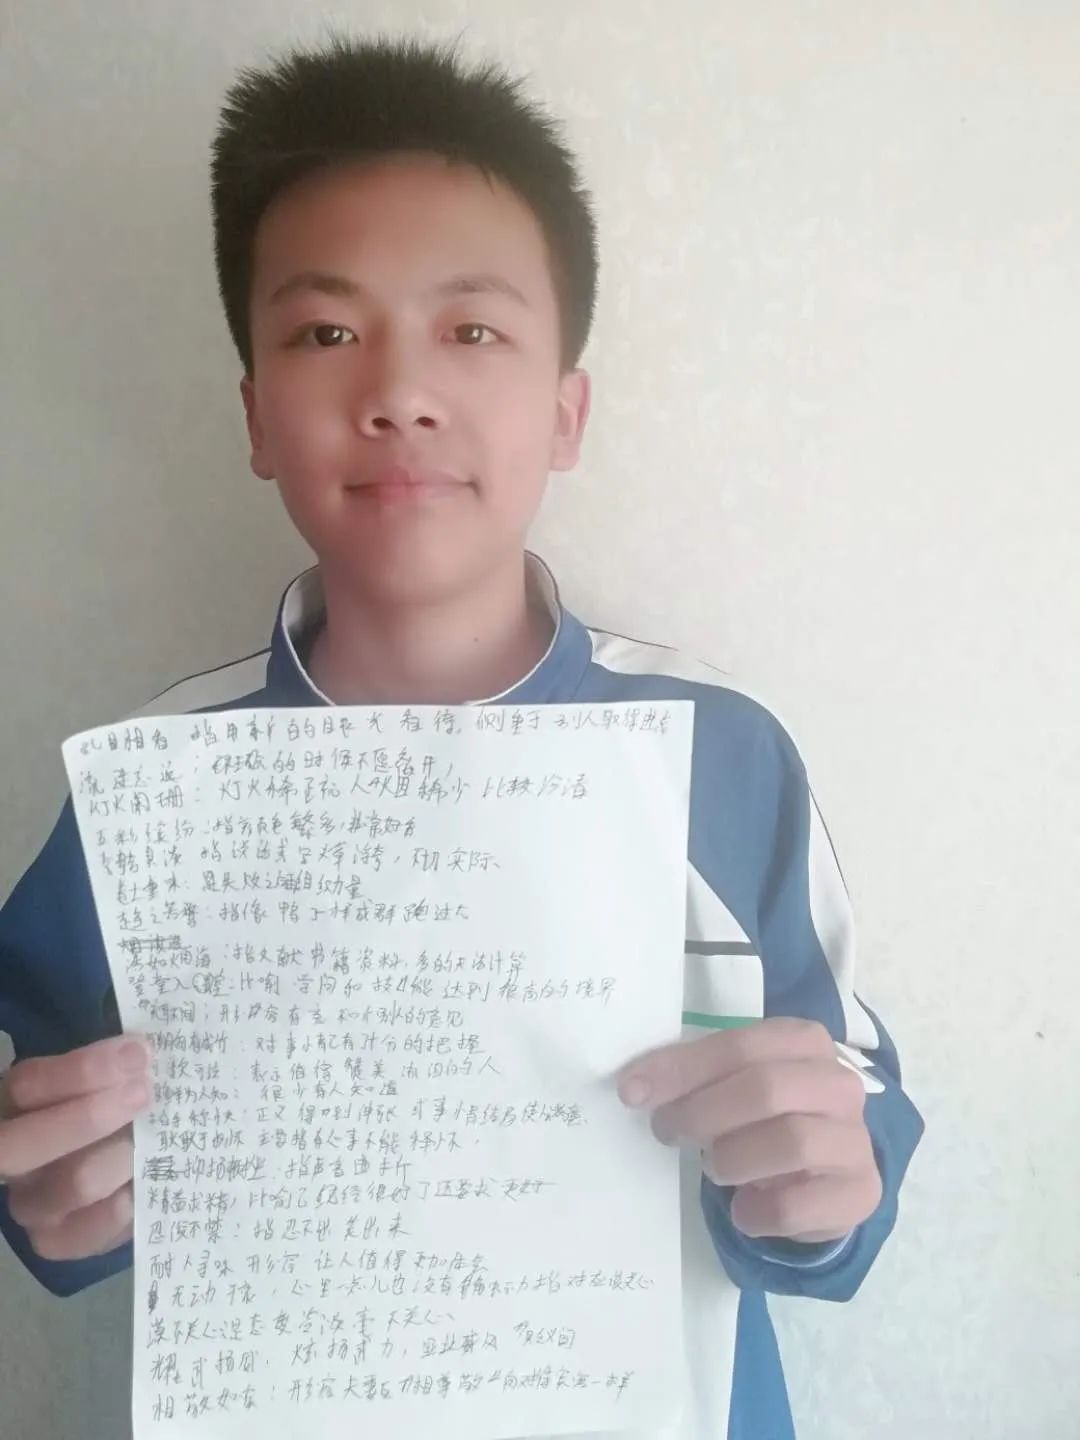 刮目相看 指用新的眼光看待,侧重于别人取得进步
流连忘返:的时候不愿离开,
灯火阑珊:灯火稀 人烟稀少 比较冷清
五彩缤纷:指颜色繁多,非常好看
指说话或写 浮夸,不切实际、
是失败之 力量
趋之若鹜:指像鸭子一样成群跑过去
浩如烟海:指文献书籍资料,多的无法计算
登堂入室:比喻 学问和技能达到很高的境界
:形容有 和别人的意见
胸有成竹:对事情已有十分的把握
:表示值得赞美 的人
鲜为人知:很少有人知道
拍手称快:正义得到伸张 或事情结局使人满意
耿耿于怀 主要指有心事不能释怀,
抑扬挫 : 指声音曲折
精益求精, 比喻已经很好了还要求更好
忍俊不禁: 指忍不出笑出来
耐人寻味 形容 让人值得更加体会
无动于衷, 心里一点儿也没有 指对应该关心
漠不关心 态度 不关心
耀武扬威, 炫扬武力,
相敬如宾:形容夫妻互相尊敬 向对待宾客一样